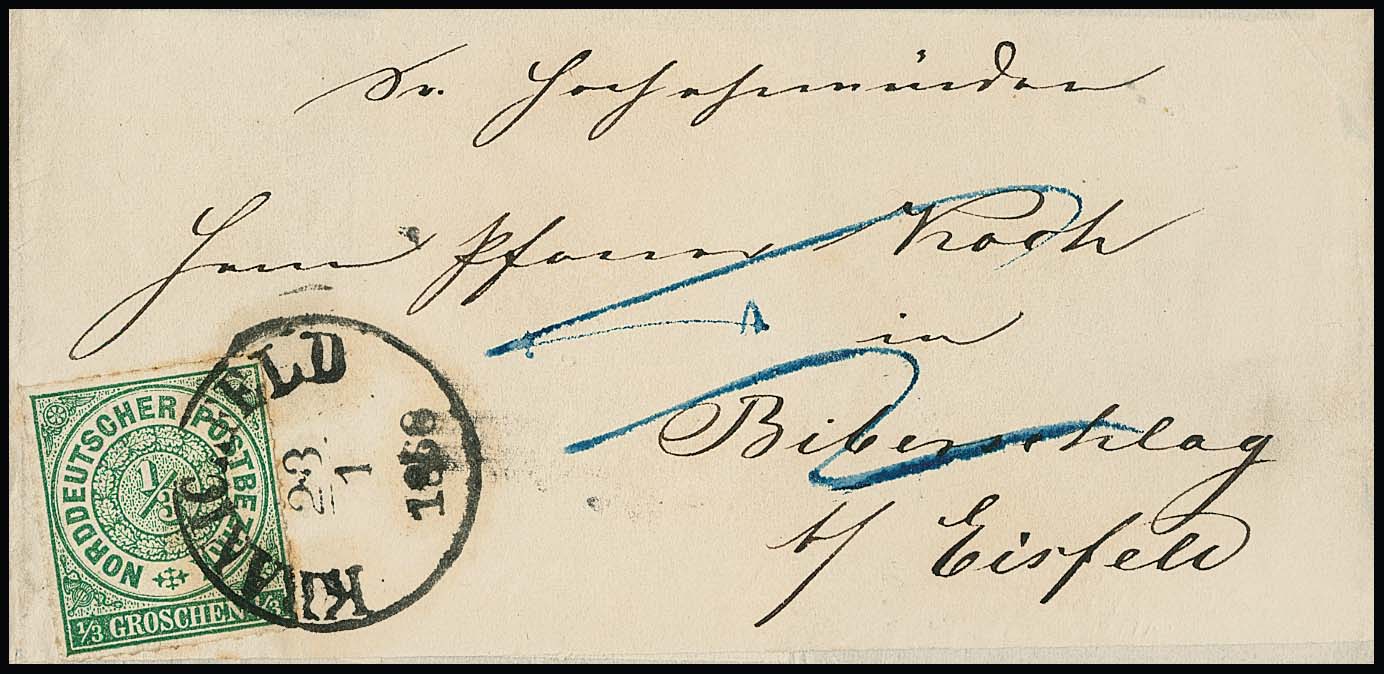 Sr. Hochehrwürden
Herrn Pfarrer Koch
in
Biberschlag
b/ Eisfeld
NORDDEUTSCHER POSTBEZIRK
1/3
1/3 GROSCHEN 1/3
KRANICHFELD
23
1
1869